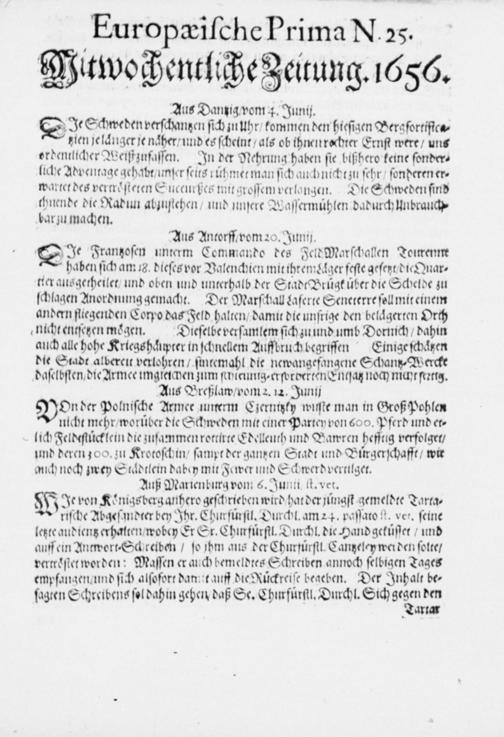 Europæische Prima N. 25.
Mitwochentliche Zeitung. 1656.
Aus Dantzig/vom 4. Junij.
DJe Schweden verschantzen sich zu Uhr/ kommen den hiesigen Bergfortifica-
tzien je länger je näher/und es scheint/ als ob ihnen rechter Ernst were/ uns
ordentlicher Weiß zufassen. In der Nehrung haben sie bißhero keine sonder-
liche Adventage gehabt/unser seits rühmet man sich auch nicht zu sehr/ sonderen er-
wartet des vertrösteten Succurßes mit grossem verlangen. Die Schweden sind
thuende die Radun abzustehen/ und unsere Wassermühlen dadurch Unbrauch-
bar zu machen.
Aus Antorff/vom 20. Junij.
DJe Frantzosen unterm Commando des FeldMarschallen Tourenne
haben sich am 18. dieses vor Valenchien mit ihrem Läger feste gesetzt/die Quar-
tier ausgetheilet/ und oben und unterhalb der Stadt Brügk über die Schelde zu
schlagen Anordnung gemacht. Der Marschall Laferte Seneterre soll mit einem
andern fliegenden Corpo das Feld halten/ damit die unsrige den belägerten Orth
nicht entsetzen mögen. Dieselbe versamlem sich zu und umb Dornich/ dahin
auch alle hohe Kriegshäupter in schnellem Auffbruch begriffen Einige schätzen
die Stadt albereit verlohren/ sintemahl die newangefangene Schantz-Wercke
daselbsten/die Armee imgleichen zum erforderten Entsatz noch nicht fertig.
Aus Breßlaw/vom 2. 12. Junij
VOn der Polnische Armee unterm Czernitzky wuste man in Groß Pohlen
nicht mehr/worüber die Schweden mit einer Partey von 600. Pferd und et-
lich Feldstücklein die zusammen rottirte Edelleuth und Bawren hefftig verfolget/
und deren 300. zu Krotoschin/ sampt der gantzen Stadt und Bürgerschafft/ wie
auch noch zwey Städtlein dabey mit Fewer und Schwerd vertilget.
Auß Marienburg vom 6. Junii, st. vet.
WJe von Königsberg anhero geschrieben wird hat der jüngst gemeldte Tarta-
rische Abgesandter bey Ihr. Churfürstl. Durchl. am 24. passato st. vet. seine
letzte audientz erhalten/wobey Er Sr. Churfürstl. Durchl. die Hand geküsset/ und
auff ein Antwort-Schreiben/ so ihm aus der Churfürstl. Cantzeley werden solte/
vertröstet worden: Massen er auch bemeldtes Schreiben annoch selbigen Tages
empfangen/und sich alsofort damit auff die Rückreise begeben. Der Inhalt be-
sagten Schreibens sol dahin gehen, daß Se. Churfürstl. Durchl. Sich gegen den
Tartar